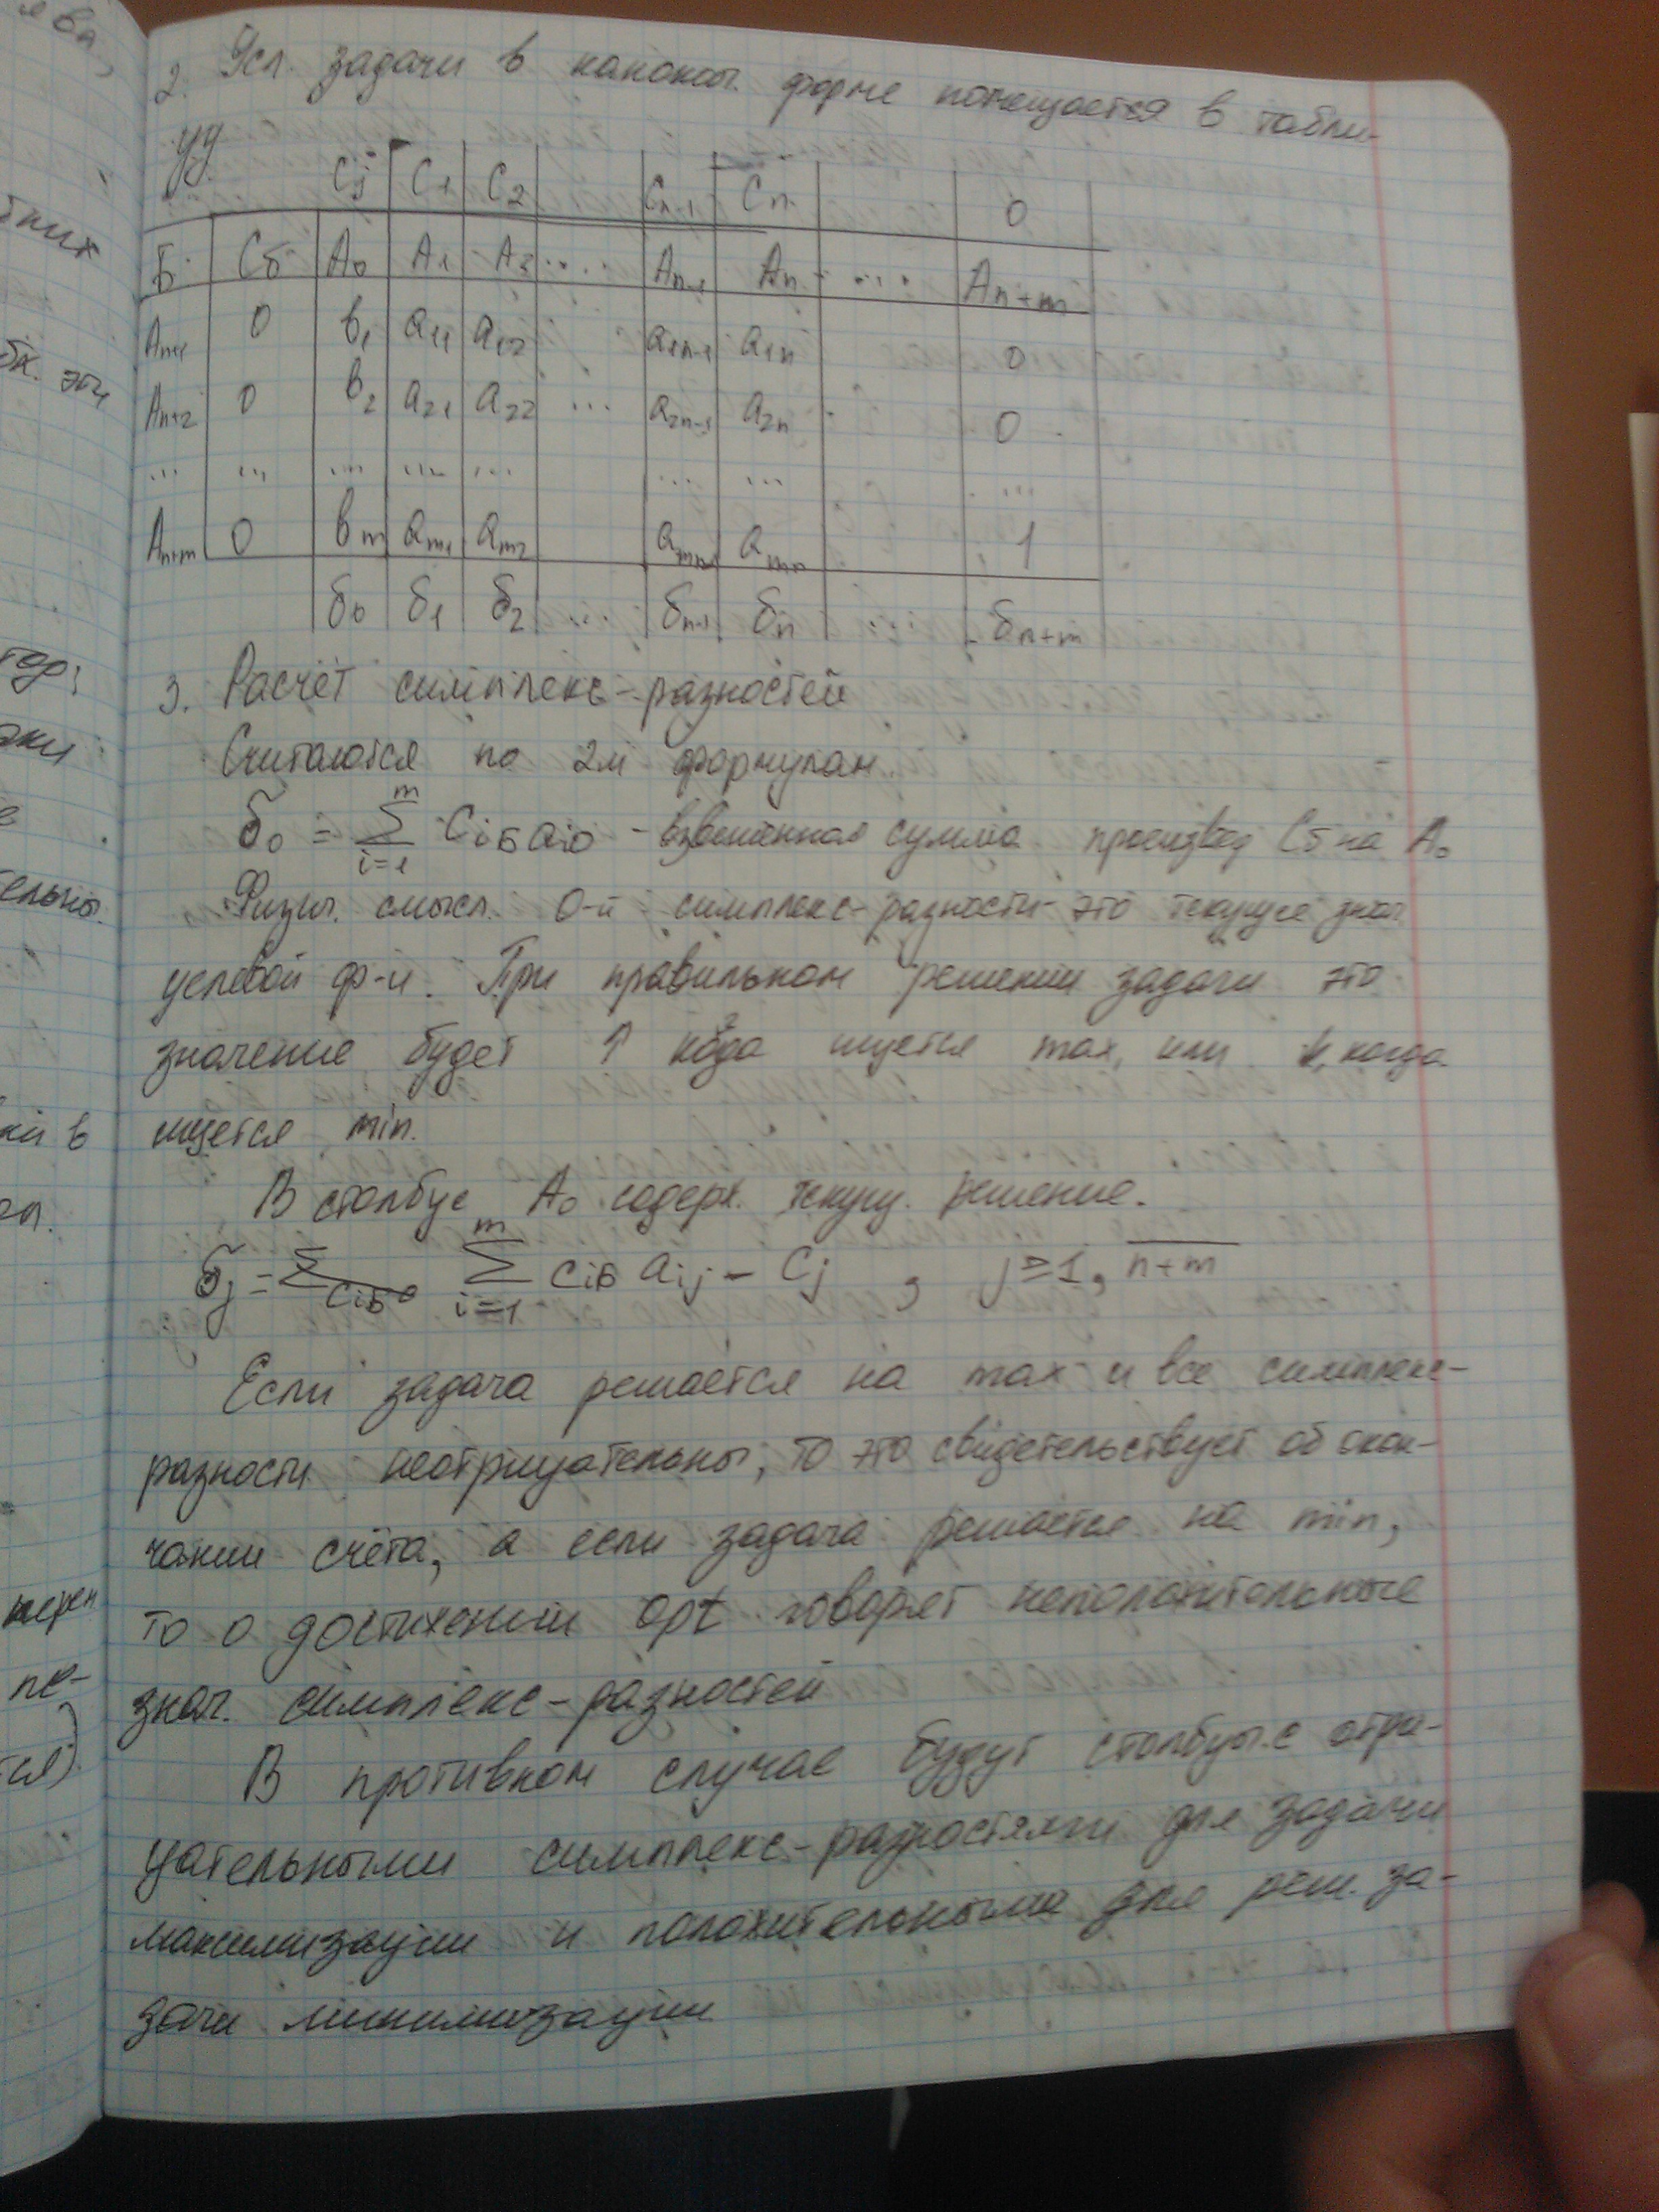 2. Усл. задачи в канонич. форме помещается в табли-
цу
Cj C1 C2 Cn-1 Cn 0
Б Cб A0 A1 A2 .... An-1 An ... An+m
An+1 0 в1 a11 a12 a1n-1 a1n 0
An+2 0 в2 a21 a22 ... a2n-1 a2n 0
... ... ... ... ... ... ... ...
An+m 0 вm am1 am2 amn-1 amn 1
δ0 δ1 δ2 ... δn-1 δn ... δn+m
3. Расчёт симплекс-разностей
Считаются по 2м формулам.
δ0 = m ∑ i=1 CiБ ai0 - взвешенная сумма произвед Cб на A0
Физич. смысл. 0-й симплекс-разности- это текущее знач
целевой ф-и. При правильном решении задачи это
значение будет ↑ когда ищется max, или ↓, когда
ищется min.
В столбце A0 содерж. текущ. решение.
δj = m ∑ i=1 CiБ aij - Cj , j=1, n+m
Если задача решается на max и все симплекс-
разности неотрицательны, то это свидетельствует об окон-
чании счёта, а если задача решается на min,
то о достижении opt говорят неположительные
знач. симплекс-разностей
В противном случае будут столбцы с отри-
цательными симплекс-разностями для задачи
максимизации и положительными для реш. за-
дачи минимизации
ева,
бк. эти
тор;
е
ки в
пе-
тся)